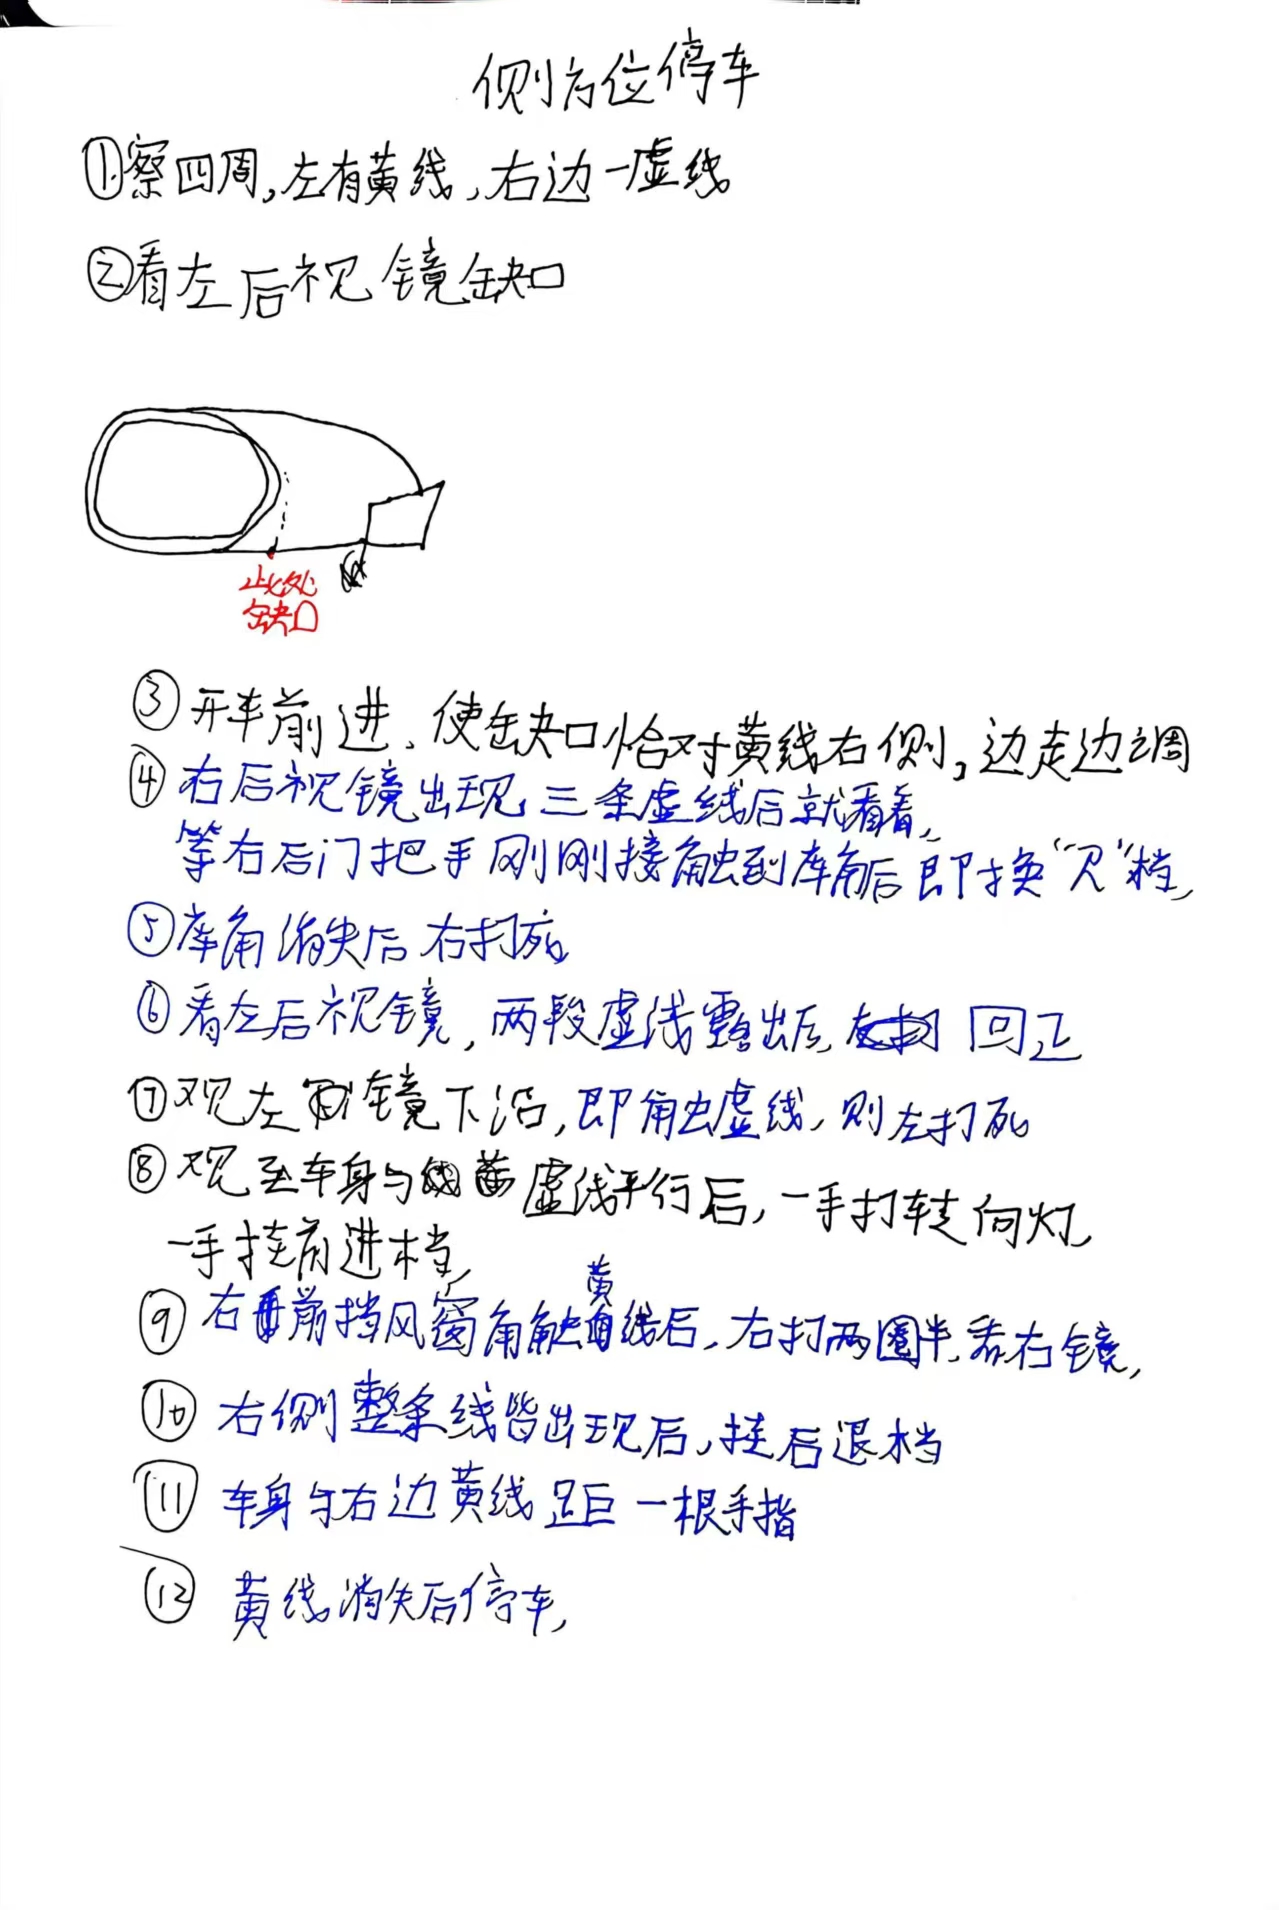 侧方位停车
①察四周,左有黄线,右边一虚线
②看左后视镜缺口
此处
缺口
③开车前进,使缺口恰对黄线右侧,边走边调
④右后视镜出现三条虚线后就看着,
等右后门把手刚刚接触到库角后即换“R”档,
⑤库角消失后右打死
⑥看左后视镜,两段虚线露出后, 回正
⑦观左侧镜下沿,即触虚线,则左打死
⑧观至车身与虚线平行后,一手打转向灯,
一手挂前进档,
黄
⑨右前挡风窗角触线后,右打两圈半,看右镜,
⑩右侧整条线皆出现后,挂后退档
⑪车身与右边黄线距一根手指
⑫黄线消失后停车,